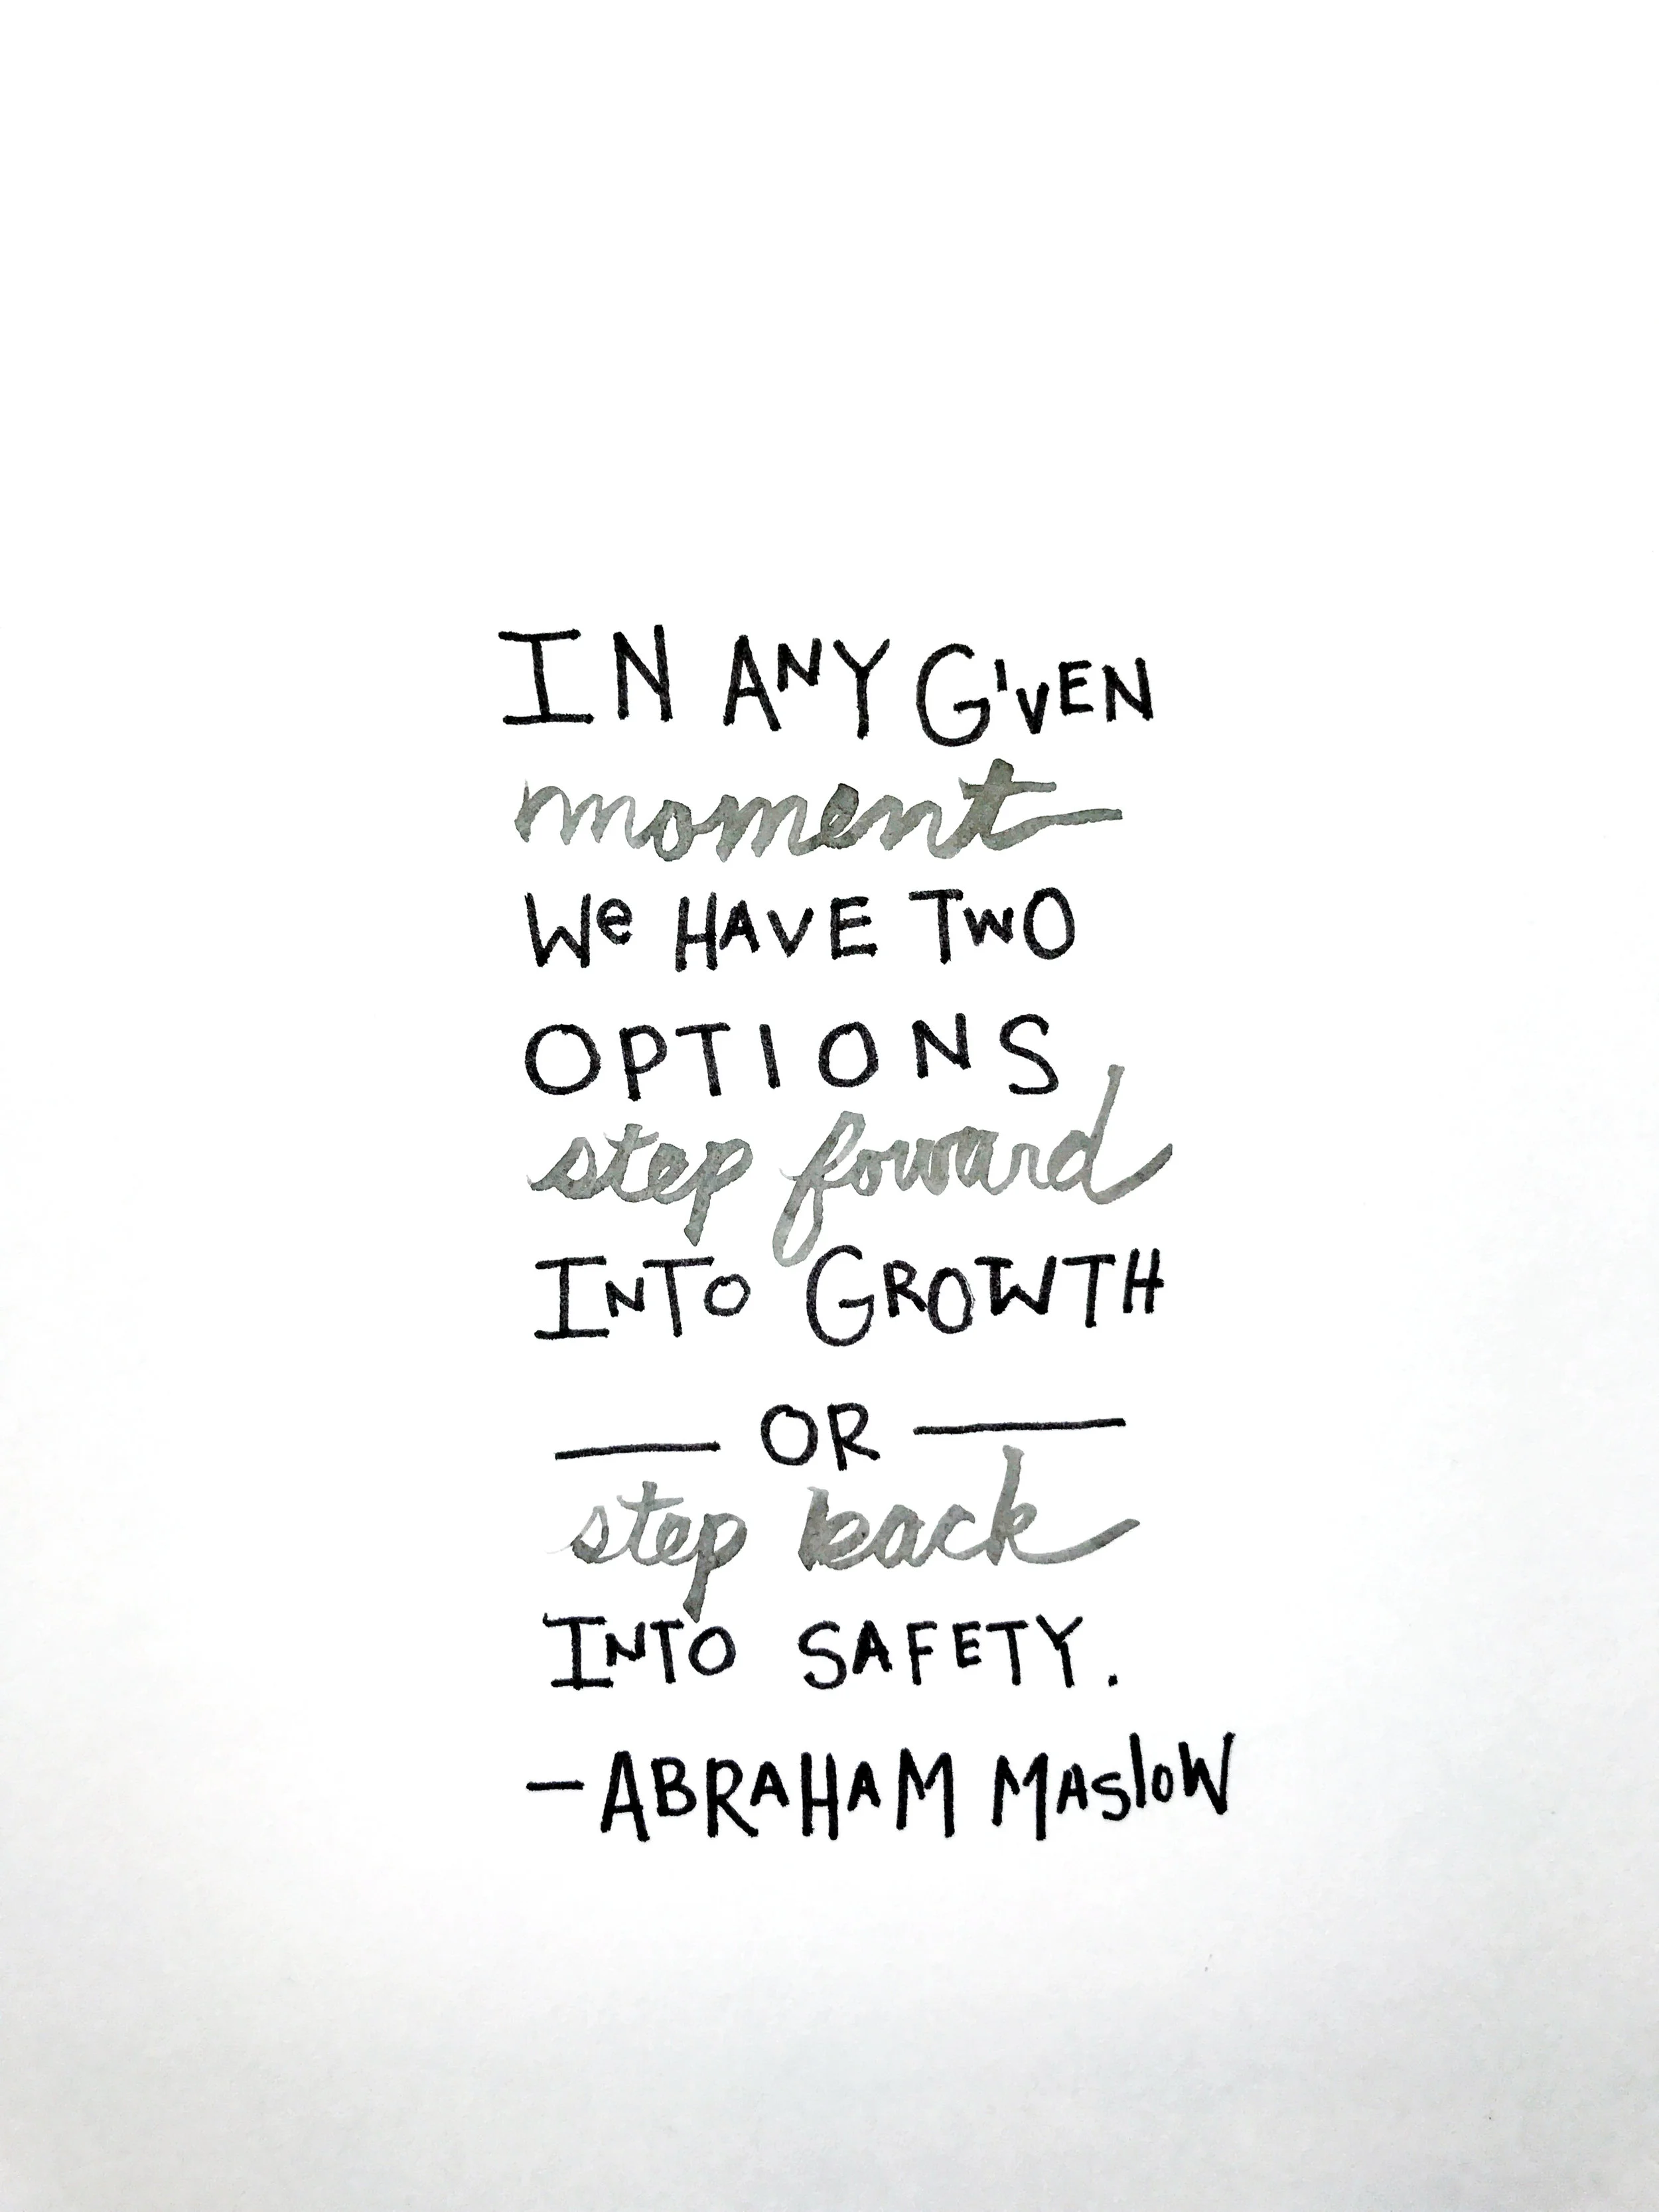 IN ANY GIVEN
moment
We HAVE TWO
OPTIONS
step foward
INTO GROWTH
— OR —
step back
INTO SAFETY.
- ABRAHAM MASlOW